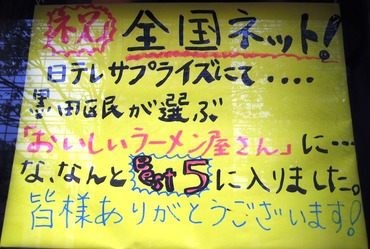 祝 全国ネット!
日テレサプライズにて....
墨田区民が選ぶ
「おいしいラーメン屋さん」に…
な、なんとBest5に入りました。
皆様ありがとうございます!